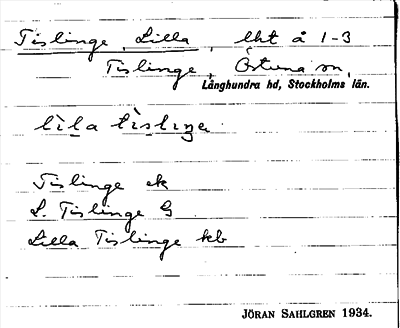 Tislinge, Lilla, lht å 1-3
Tislinge, Östuna sn,
Långhundra hd, Stockholms län.
lìla tìslıŋa
Tislinge ek
L. Tislinge G
Lilla Tislinge kb
JÖRAN SAHLGREN 1934.